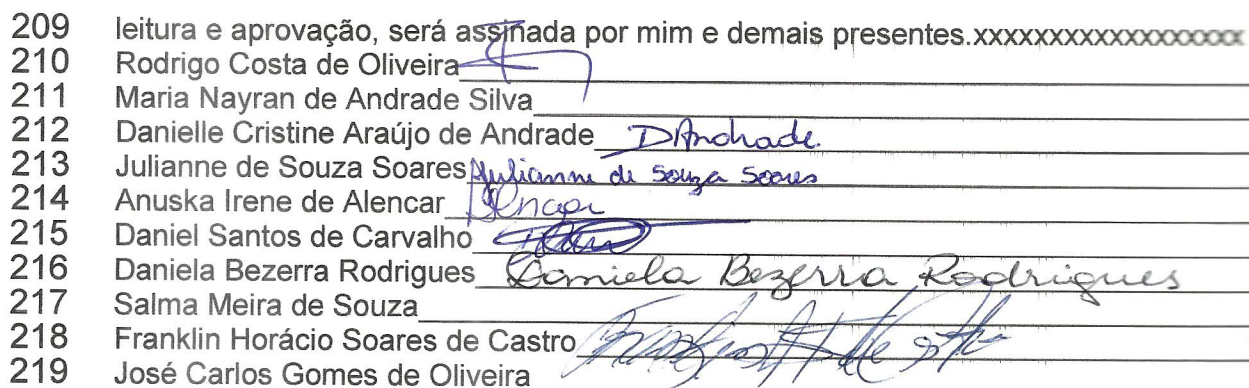 209 leitura e aprovação, será assinada por mim e demais presentes.xxxxxxxxxxxxxxxxxxx
210 Rodrigo Costa de Oliveira
211 Maria Nayran de Andrade Silva
212 Danielle Cristine Araújo de Andrade DAndrade
213 Julianne de Souza Soares Julianne de Souza Soares
214 Anuska Irene de Alencar Alencar
215 Daniel Santos de Carvalho
216 Daniela Bezerra Rodrigues Daniela Bezerra Rodrigues
217 Salma Meira de Souza
218 Franklin Horácio Soares de Castro
219 José Carlos Gomes de Oliveira